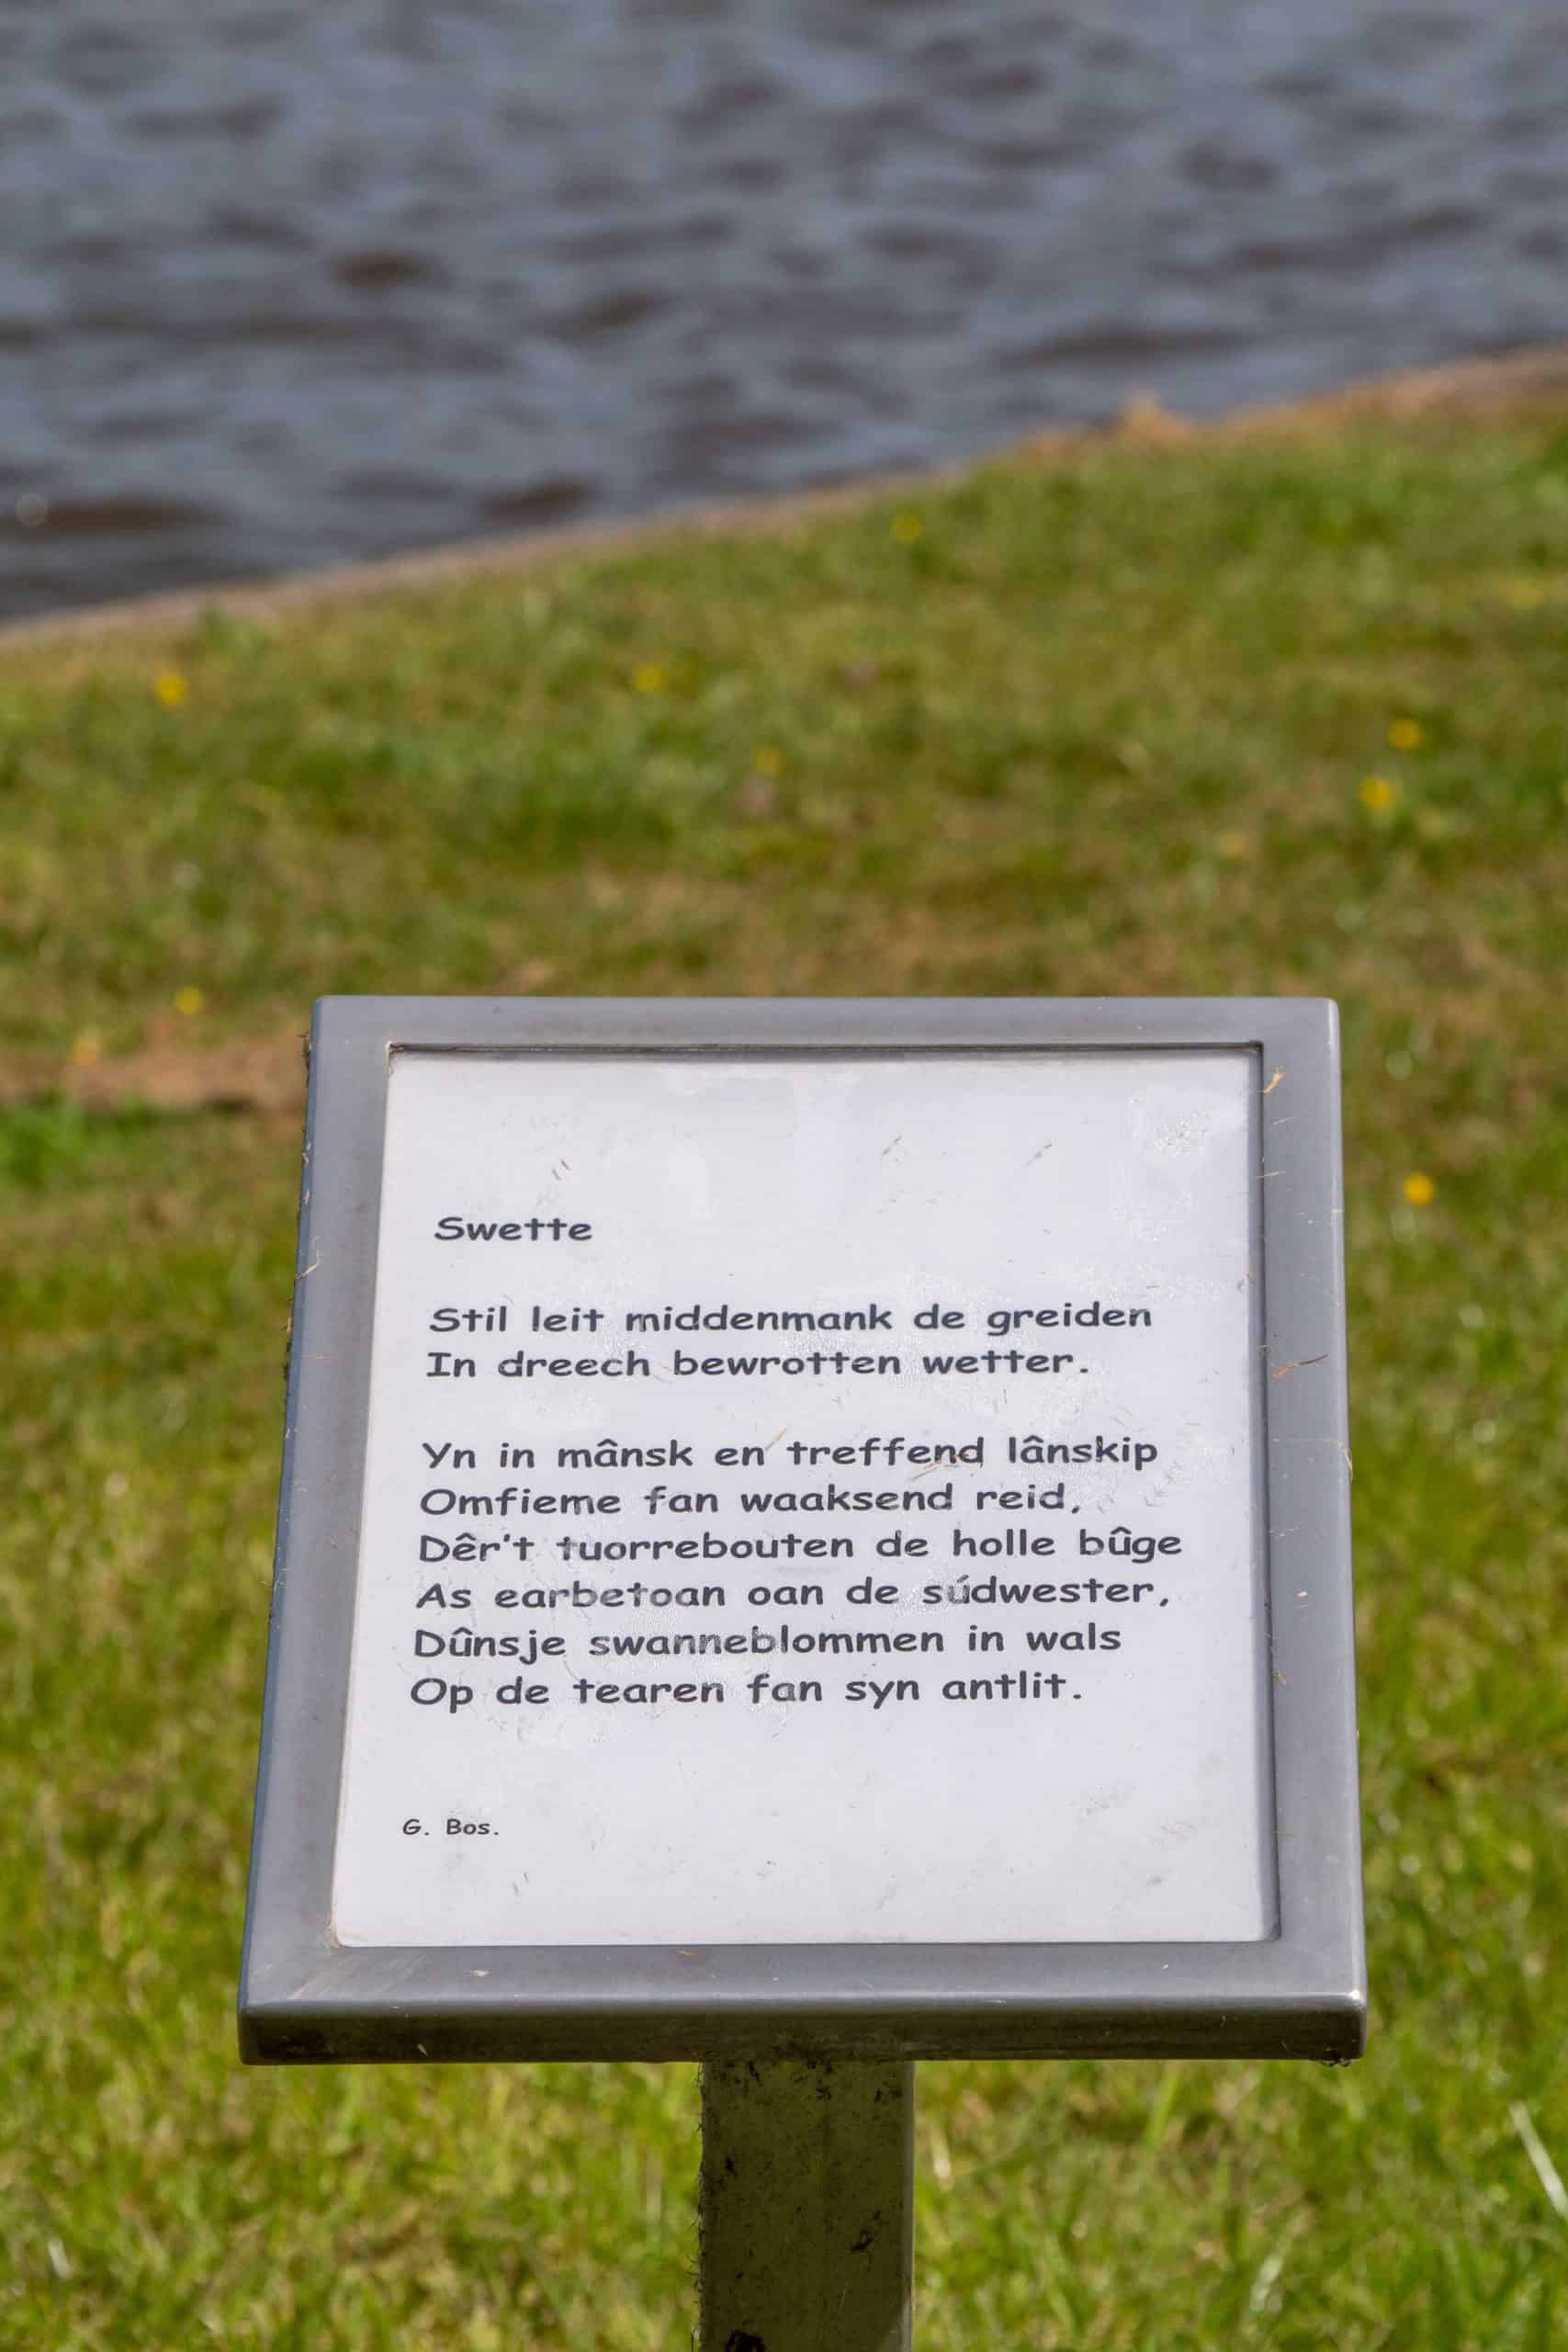 Swette
Stil leit middenmank de greiden
In dreech bewrotten wetter.
Yn in mânsk en treffend lânskip
Omfieme fan waaksend reid,
Dêr't tuorrebouten de holle bûge
As earbetoan oan de súdwester,
Dûnsje swanneblommen in wals
Op de tearen fan syn antlit.
G. Bos.